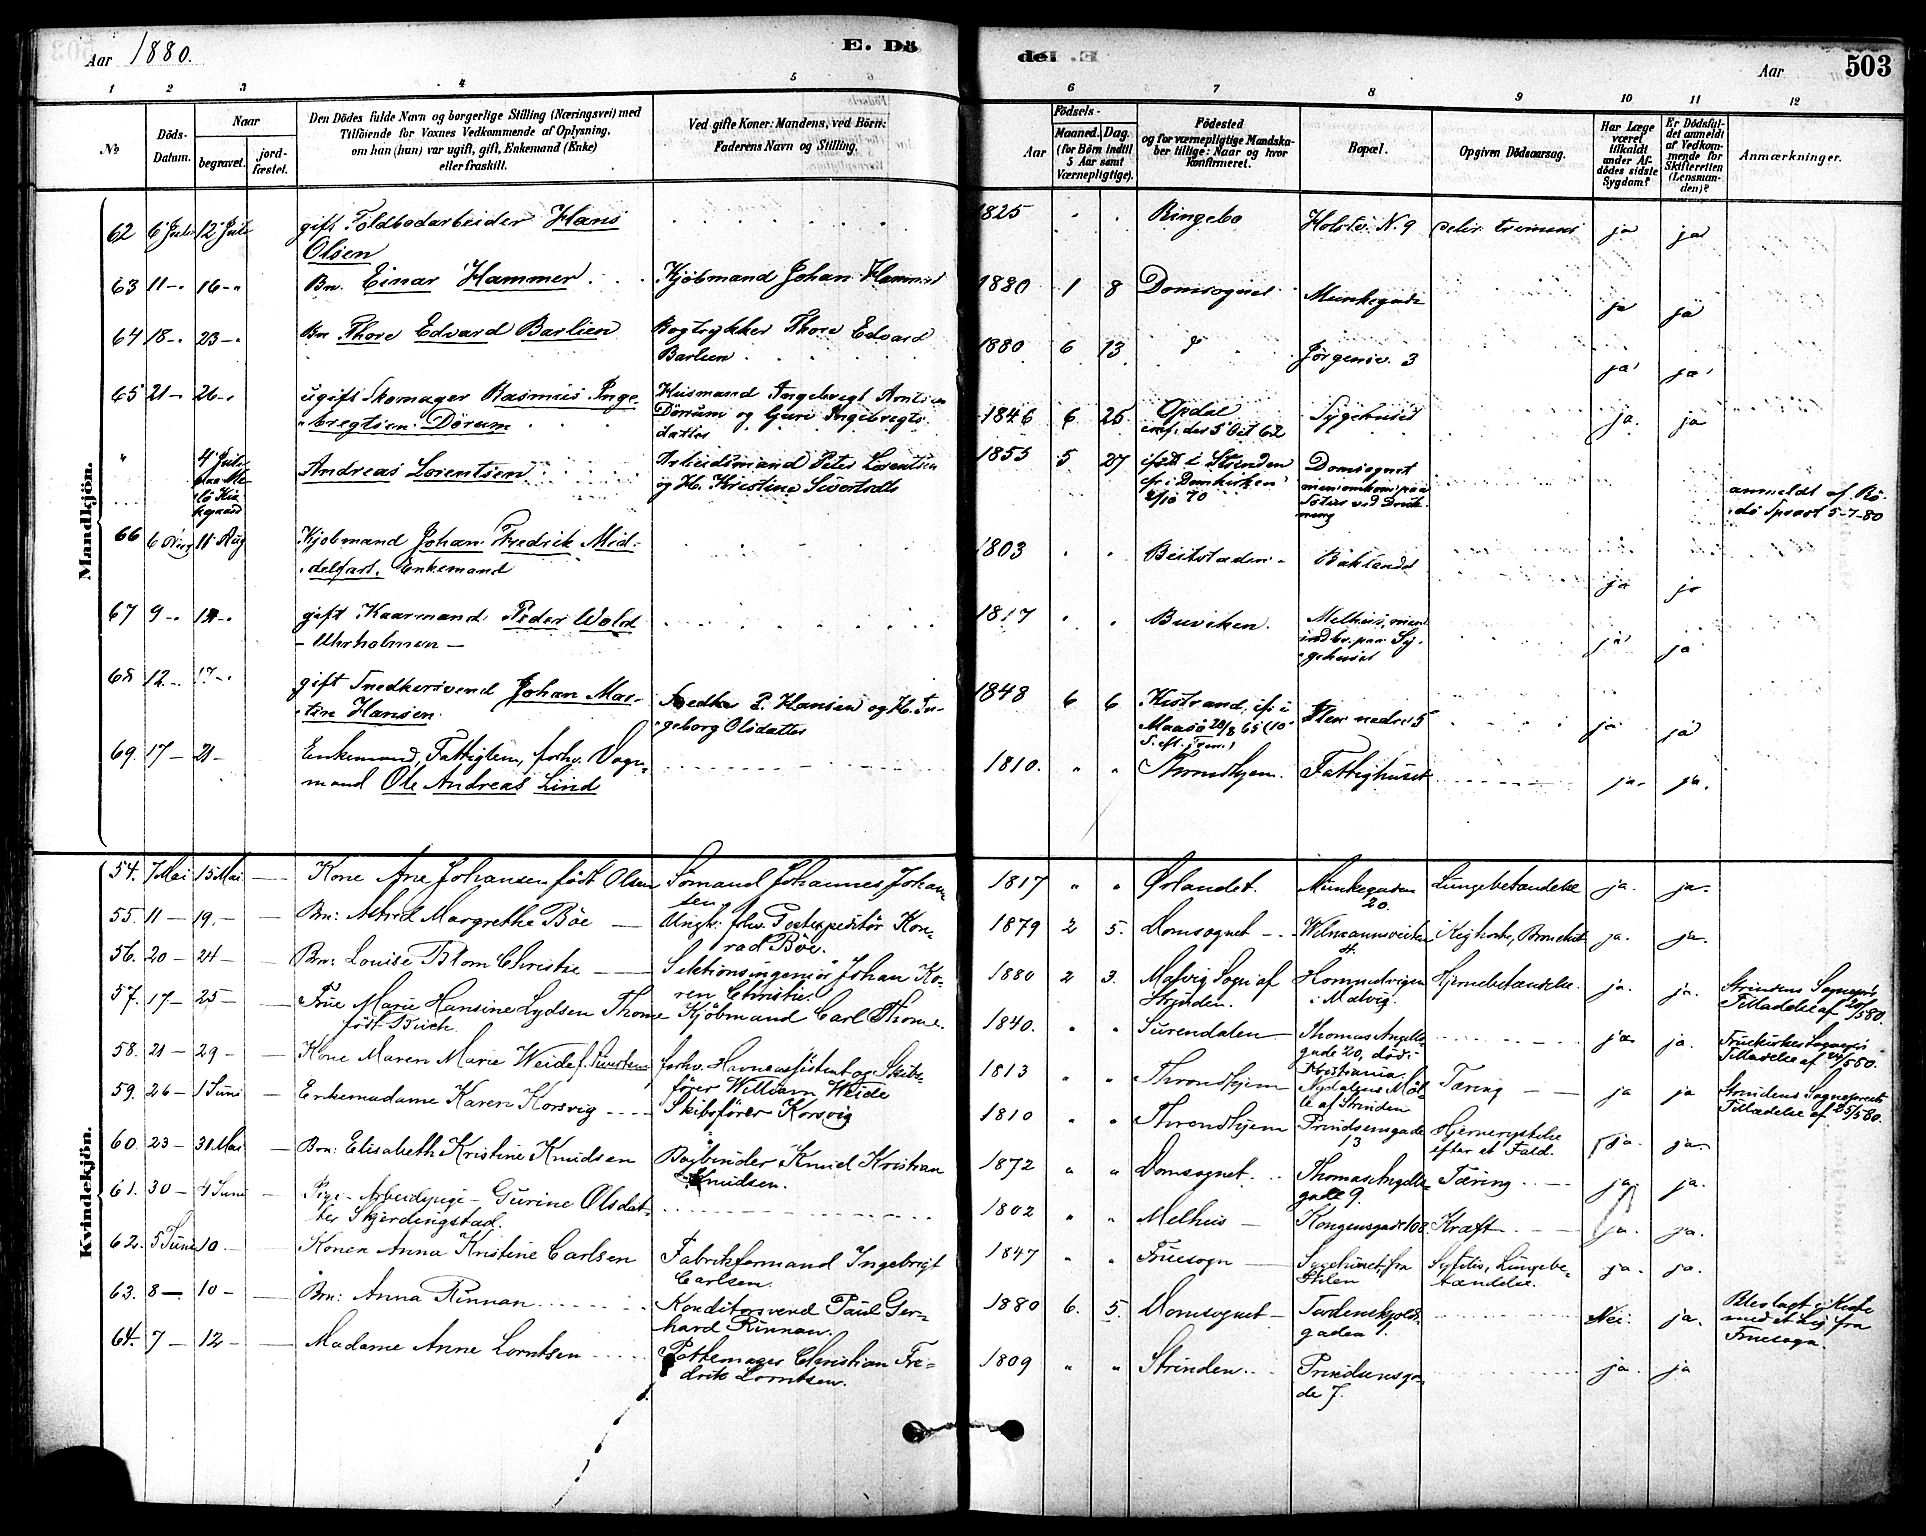 Aar 1880.
E. Dö
del E.
Aar
503
1 2 3 4 5 6 7 8 9 10 11 12
No
Döds-Datum.
Naar
begravet.
jord-fæstet.
Den Dödes fulde Navn og borgerlige Stilling (Næringsvei) med
Tilföiende for Voxnes Vedkommende af Oplysning,
om han (hun) var ugift, gift, Enkemand (Enke)
eller fraskilt.
Ved gifte Koner: Mandens, ved Börn:
Faderens Navn og Stilling.
Födsels-
Aar
Maaned. Dag.
(for Börn indtil
5 Aar samt
Værnepligtige).
Födested
og for værnepligtige Mandska-
ber tillige: Naar og hvor
Konfirmeret.
Bopæl.
Opgiven Dödsaarsag.
Har Læge
været
tilkaldt
under Af-
dödes sidste
Sygdom?
Er Dödsfal-
det anmeldt
af Vedkom-
mende for
Skifteretten
(Lensman-
den)?
Anmærkninger.
Mandkjön.
62 6 Juli 12 Juli gift Toldbodarbeider Hans 1825 Ringebo Holstv. N. 9 delir. tremens ja ja
Olsen
63 11 16 Bn. Einar Hammer Kjöbmand Johan Hammer 1880 1 8 Domsognet Munkegade ja ja
64 18 23 Bn Thore Edvard Barlien Bogtrykker Thore Edvard 1880 6 13 Jörgensv. 3 ja ja
Barlien
65 21 26 ugift Skomager Rasmus Inge- Husmand Ingebregt Arntsen 1846 6 26 Opdal Sygehuset ja ja
bregtsen Dörum Dörrum og Guri Ingebregts- 5 Oct 62
datter
" 4 Juli Andreas Lorentsen Arbeidsmand Peter Lorentsen 1855 5 27 födt i Strinden Domsognet
og H. Kristine Sivertsdtr i Domkirken 2/10 70 anmeldt af
5-7-80
66 6 Aug 11 Aug Kjöbmand Johan Fredrik Mid- 1803 Beitstaden Baklandet ja ja
delfart. Enkemand
67 9 gift Kaarmand Peder Wold 1817 Buviken Melhus, men ja ja
- Uhrholmen - indlv. paa Sy-
gehuset
68 12 17 gift Snedkersvend Johan Mar- Snedker P. Hansen og H. In- 1848 6 6 Kistrand, ja ja
tin Hansen geborg Olsdatter Maasö 20/8 65
69. 17 21 Enkemand, Fattiglem, forhv. Vogn- 1810. " " Throndhjem. Fattighuset ja. ja.
mand Ole Andreas Lind
Kvindekjön.
54. 7 Mai 15 Mai Kone Ane Johansen födt Olsen Sömand Johannes Johan- 1817 " " Ørlandet. Munkegaden Lungebetændelse ja. ja.
sen 20.
55. 11 19. Bn: Astrid Margrethe Böe forv. Postexpeditör Kon- 1879 2 5. Domsognet Wilmannsveiten Kighoste, Bronchit ja. ja.
rad Böe.
56. 20 24 Bn: Louise Blom Christie Sektionsingeniör Johan Ko- 1880 2 3. Malvig Sogn af Hommelvigen Hjernebetændelse ja. ja. Strindens Sognepr.
ren Christie. Strinden. i Malvig. Tilladelse af 20/5 80.
57. 17 25 Frue Marie Hansine Lydsen Thome Kjöbmand Carl Thome. 1840. " " Surendalen Thomas Angells- ja. ja. Fruekirkes Sognepr.
födt Buch. gade 20, död i Tilladelse af 24/5 80.
Kristiania.
58. 21 29 Kone Maren Marie Weide f. forhv. Havneassistent og Skibs- 1813 " " Throndhjem Nydalens Möl- Tæring ja ja Strindens Sogneprests
förer William Weide le af Strinden Tilladelse af 25/5 80.
59. 26 1 Juni Enkemadame Karen Korsvig Skibsförer Korsvig 1810 " " Throndhjem Prindsensgade Hjernerystelse ja. ja.
13 efter et Fald.
60. 23 31 Mai Bn: Elisabeth Kristine Knudsen Bogbinder Knud Kristian 1872 " " Domsognet. Thomas Angells- Tæring ja. ja.
Knudsen. gade 9.
61. 30 4 Juni Pige - Arbeidspige - Gurine Olsdat- 1802 " " Melhus Kongensgade 108 Kræft ja. ja.
ter Skjerdingstad.
62. 5 Juni 10 Konen Anna Kristine Carlsen Fabrikformand Ingebrigt 1847 " " Fruesogn Sygehuset, fra Syfilis, Lungebe- ja. ja.
Carlsen. Ihlen tændelse.
63. 8 10 Bn: Anna Rinnan Konditorsvend Paul Ger- 1880 6. 5. Domsognet Tordenskjolds- Nei. ja. Blev lagt i Kiste
hard Rinnan. gaden 1. med et Lig fra
Fruesogn.
64. 7 12 Madame Anne Lorntsen Pottemager Christian Fre- 1809 " " Strinden. Prindsensga- ja. ja
drik Lorntsen. de 7.